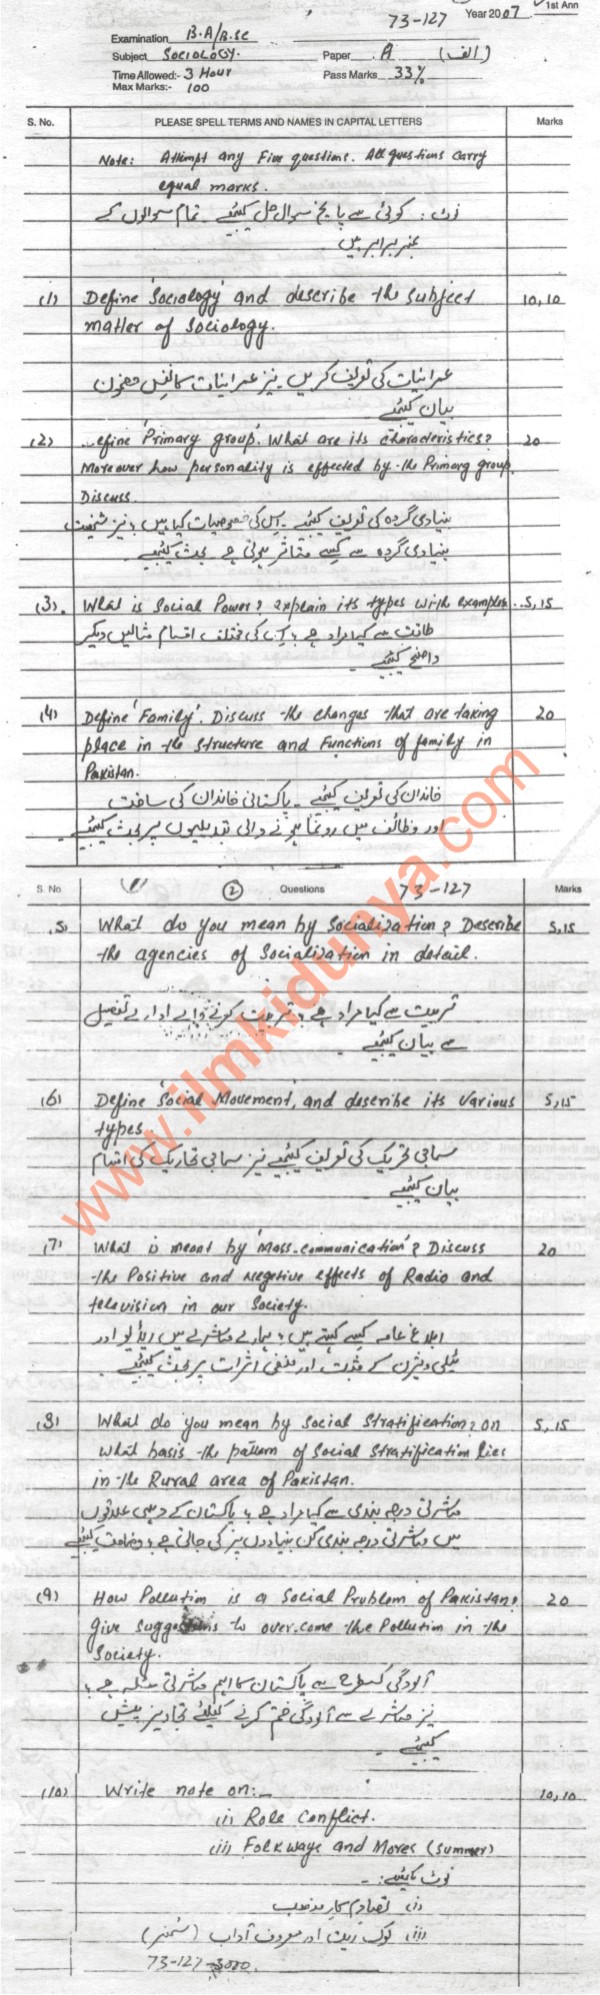 73-127 Year 2007 1st Ann
Examination B.A/B.SC
Subject SOCIOLOGY. Paper A (الف)
Time Allowed:- 3 Hour Pass Marks 33%
Max Marks:- 100
S. No. PLEASE SPELL TERMS AND NAMES IN CAPITAL LETTERS Marks
Note: Attempt any Five questions. All questions carry
equal marks.
نوٹ: کوئی سے پانچ سوال حل کیجئیے۔ تمام سوالوں کے
نمبر برابر ہیں
(1) Define 'Sociology' and describe the subject 10,10
matter of Sociology.
عمرانیات کی تعریف کریں۔ نیز عمرانیات کا نفس مضمون
بیان کیجئیے
(2) ..efine 'Primary group'. What are its characteristics? 20
Moreover how personality is effected by the Primary group.
Discuss.
بنیادی گروہ کی تعریف کیجئیے۔ اس کی خصوصیات کیا ہیں؟ نیز شخصیت
بنیادی گروہ سے کیسے متاثر ہوتی ہے۔ بحث کیجئیے
(3). What is Social Power? explain its types with examples. 5,15
طاقت سے کیا مراد ہے؟ اس کی مختلف اقسام مثالیں دیکر
واضح کیجئیے
(4) Define 'Family'. Discuss the changes that are taking 20
place in the structure and Functions of family in
Pakistan.
خاندان کی تعریف کیجئیے۔ پاکستانی خاندان کی ساخت
اور وظائف میں رونما ہونے والی تبدیلیوں پر بحث کیجئیے
S. No (2) Questions 73-127 Marks
.5) What do you mean by Socialization? Describe 5,15
the agencies of Socialization in detail.
تربیت سے کیا مراد ہے؟ تربیت کرنے والے ادارے تفصیل
سے بیان کیجئیے
(6) Define 'Social Movement', and describe its various 5,15
types.
سماجی تحریک کی تعریف کیجئیے نیز سماجی تحاریک کی اقسام
بیان کیجئیے
(7) What is meant by 'Mass-communication'? Discuss 20
the Positive and Negetive effects of Radio and
television in our Society.
ابلاغ عامہ کسے کہتے ہیں؟ ہمارے معاشرے میں ریڈیو اور
ٹیلی ویژن کے مثبت اور منفی اثرات پر بحث کیجئیے
(8) What do you mean by Social Stratification? on 5,15
what basis the pattern of Social Stratification lies
in the Rural area of Pakistan.
معاشرتی درجہ بندی سے کیا مراد ہے؟ پاکستان کے دیہی علاقوں
میں معاشرتی درجہ بندی کن بنیادوں پر کی جاتی ہے؟ وضاحت کیجئیے
(9) How Pollution is a Social Problem of Pakistan? 20
give suggestions to over-come the Pollution in the
Society.
آلودگی کسطرح سے پاکستان کا اہم معاشرتی مسئلہ ہے؟
نیز معاشرے سے آلودگی ختم کرنے کیلئے تجاویز پیش
کیجئیے
(10) Write note on:- 10,10
(i) Role Conflict.
(ii) Folkways and Mores (Sumner)
نوٹ لکھئیے:-
(i) تصادم کار منصب
(ii) لوک ریت اور معروف آداب (سمنر)
73-127-3000.
www.ilmkidunya.com